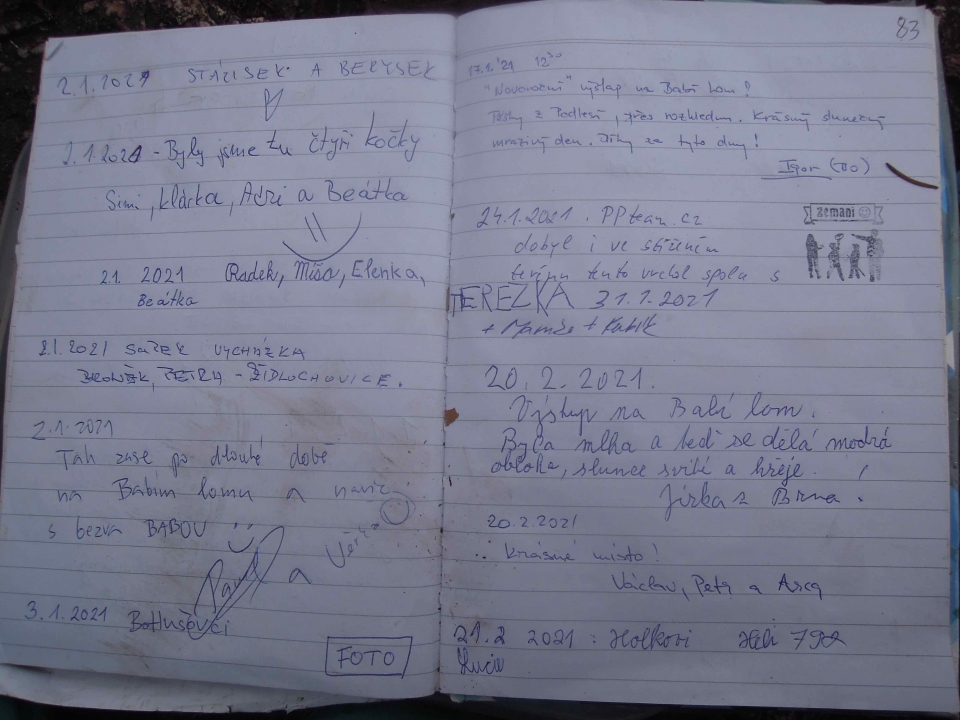 2.1.2021 STÁZISEK A BERYSEK
2.1.2021 - Byly jsme tu čtyři kočky
Simi, Klárka, Adri a Beátka
2.1. 2021 Radek, Míša, Elenka,
Beátka
2.1.2021 VYCHÁZKA
PETRA - ŽIDLOCHOVICE.
2.1.2021
Tak zase po dlouhé době
na Babím lomu a navíc
s bezva BABOU
Pavel a
3.1.2021 Bohuševci
FOTO
83
17.1.'21 12³⁰
"Novoroční" výšlap na Babí lom!
Pěšky z Podlesí, přes rozhlednu. Krásný slunečný
mrazivý den. Díky za tyto dny!
Igor (TIO)
24.1.2021. PPteam.cz
zemani
dobyl i ve stíženém
terénu tento vrchol spolu s
TEREZKA 31.1.2021
+ Kubík
20.2.2021.
Výstup na Babí lom.
Byla mlha a teď se dělá modrá
obloha, slunce svítí a hřeje.
Jirka z Brna!
20.2.2021
Krásné místo!
Václav, Petr a
21.2 2021: Holkovi
Lucie